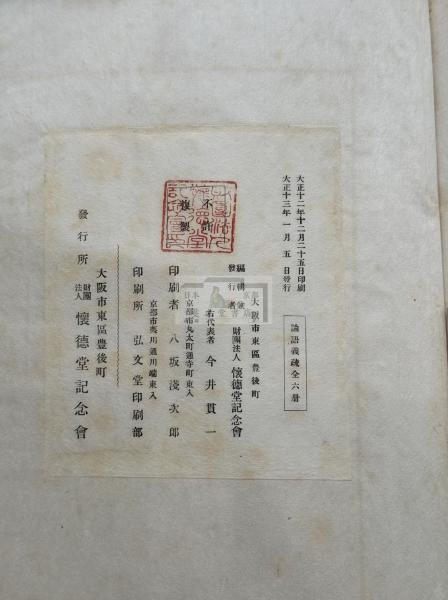 大正十二年十二月二十五日印刷
大正十三年一月五日發行
論語義疏全六册
大阪市東區豊後町
編輯兼
發行者
財團法人 懷德堂記念會
右代表者 今井貫一
京都市丸太町通寺町東入
印刷者 八坂淺次郎
京都市夷川通川端東入
印刷所 弘文堂印刷部
大阪市東區豊後町
發行所 財團法人 懷德堂記念會
不許
複製